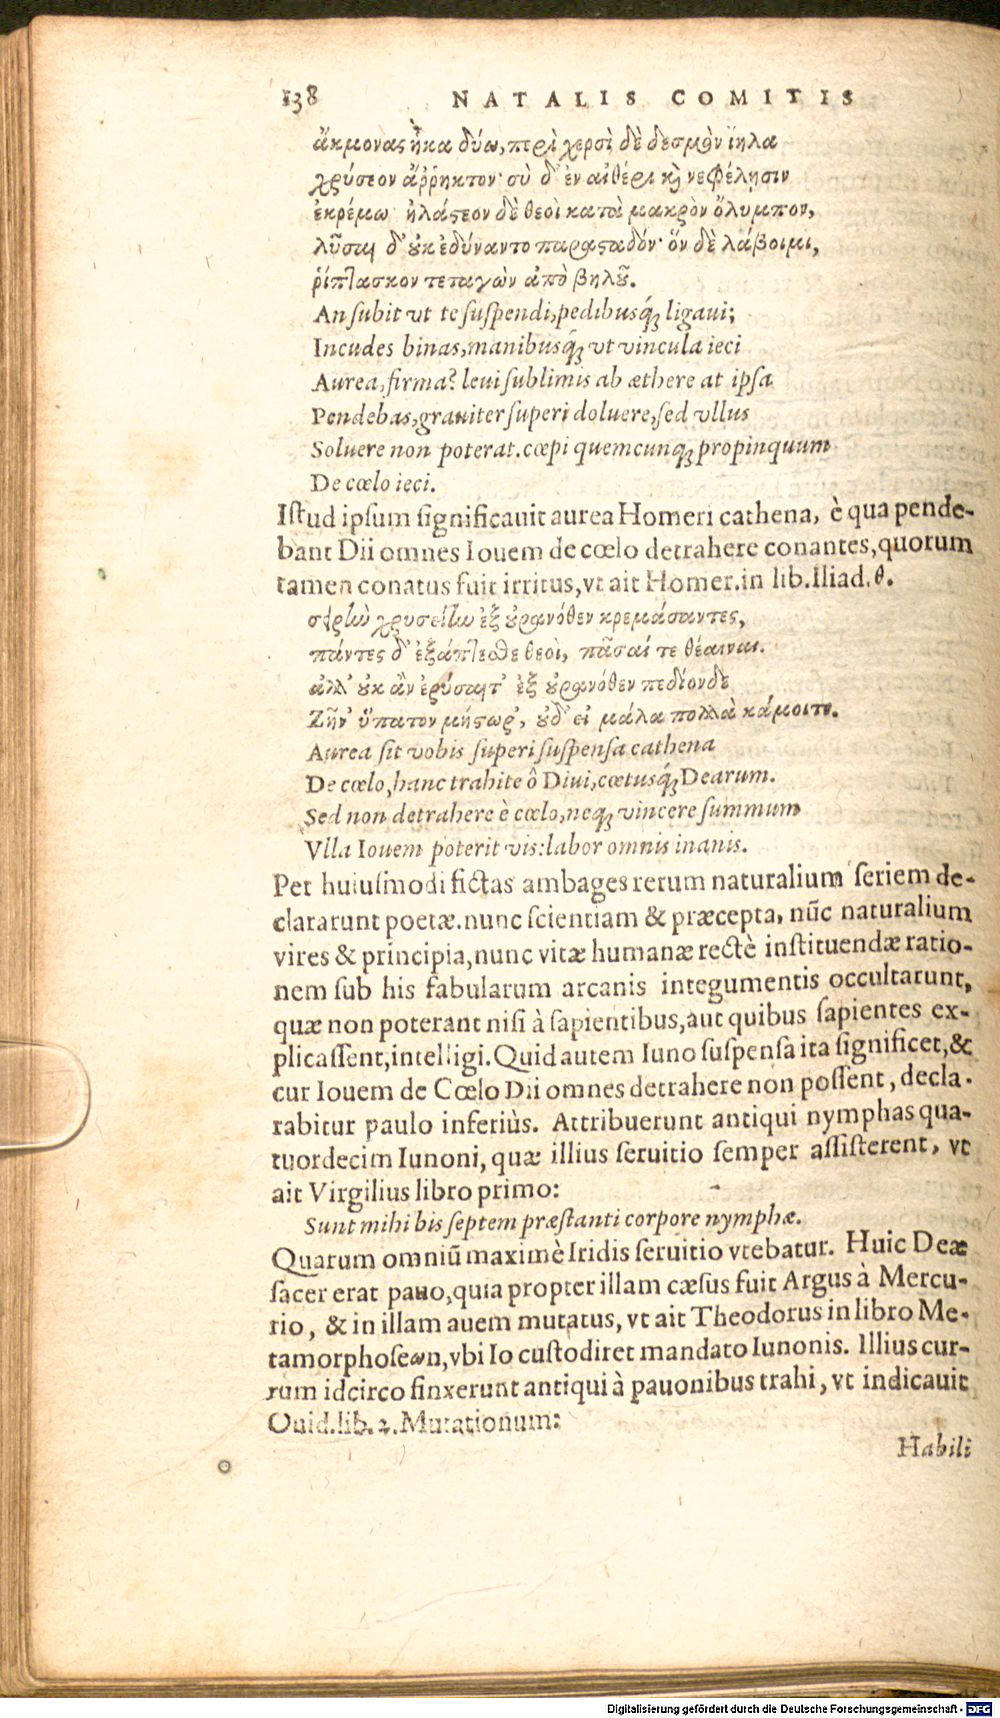 138 NATALIS COMITIS
ἄκμονας ἧκα δύω, περὶ χερσὶ δὲ δεσμὸν ἴηλα
χρύσεον ἄῤῥηκτον· σὺ δ' ἐν αἰθέρι κὶ νεφέλησιν
ἐκρέμω ἠλάςεον δὲ θεοὶ κατὰ μακρὸν ὄλυμπον,
λῦσαι δ' ȣκ ἐδύναντο παραςαδόν· ὅν δὲ λάβοιμι,
ῥίπτασκον τεταγὼν ἀπὸ βηλȣ͂.
An subit vt te suspendi, pedibusq́ꝫ ligaui;
Incudes binas, manibusq́ꝫ vt vincula ieci
Aurea, firma? leui sublimis ab æthere at ipsa
Pendebas, grauiter superi doluere, sed vllus
Soluere non poterat. cœpi quemcunqꝫ propinquum
De cœlo ieci.
Istud ipsum significauit aurea Homeri cathena, è qua pende-
bant Dii omnes Iouem de cœlo detrahere conantes, quorum
tamen conatus fuit irritus, vt ait Homer. in lib. Iliad. θ.
σειρlὼ χρυσείlω ἐξ ȣρανόθεν κρεμάσαντες,
πάντες δ' ἐξάπτεσθε θεοὶ, πᾶσαί τε θέαιναι.
ἀλλ' ȣκ ἂν ἐρύσαιτ' ἐξ ȣρανόθεν πεδίονδε
Ζῆν' ὕπατον μήςωρ', ȣδ' εἰ μάλα πολλὰ κάμοιτε.
Aurea sit vobis superi suspensa cathena
De cœlo, hanc trahite ô Diui, cœtusq́ꝫ Dearum.
Sed non detrahere è cœlo, neqꝫ vincere summum
Vlla Iouem poterit vis: labor omnis inanis.
Per huiusmodi fictas ambages rerum naturalium seriem de-
clararunt poetæ. nunc scientiam & præcepta, nũc naturalium
vires & principia, nunc vitæ humanæ rectè instituendæ ratio-
nem sub his fabularum arcanis integumentis occultarunt,
quæ non poterant nisi à sapientibus, aut quibus sapientes ex-
plicassent, intelligi. Quid autem Iuno suspensa ita significet, &
cur Iouem de Cœlo Dii omnes detrahere non possent, decla-
rabitur paulo inferiùs. Attribuerunt antiqui nymphas qua-
tuordecim Iunoni, quæ illius seruitio semper assisterent, vt
ait Virgilius libro primo:
Sunt mihi bis septem præstanti corpore nymphæ.
Quarum omniũ maximè Iridis seruitio vtebatur. Huic Deæ
sacer erat pauo, quia propter illam cæsus fuit Argus à Mercu-
rio, & in illam auem mutatus, vt ait Theodorus in libro Me-
tamorphoseωn, vbi Io custodiret mandato Iunonis. Illius cur-
rum idcirco finxerunt antiqui à pauonibus trahi, vt indicauit
Ouid. lib. 2. Mutationum:
Habili
Digitalisierung gefördert durch die Deutsche Forschungsgemeinschaft - DFG